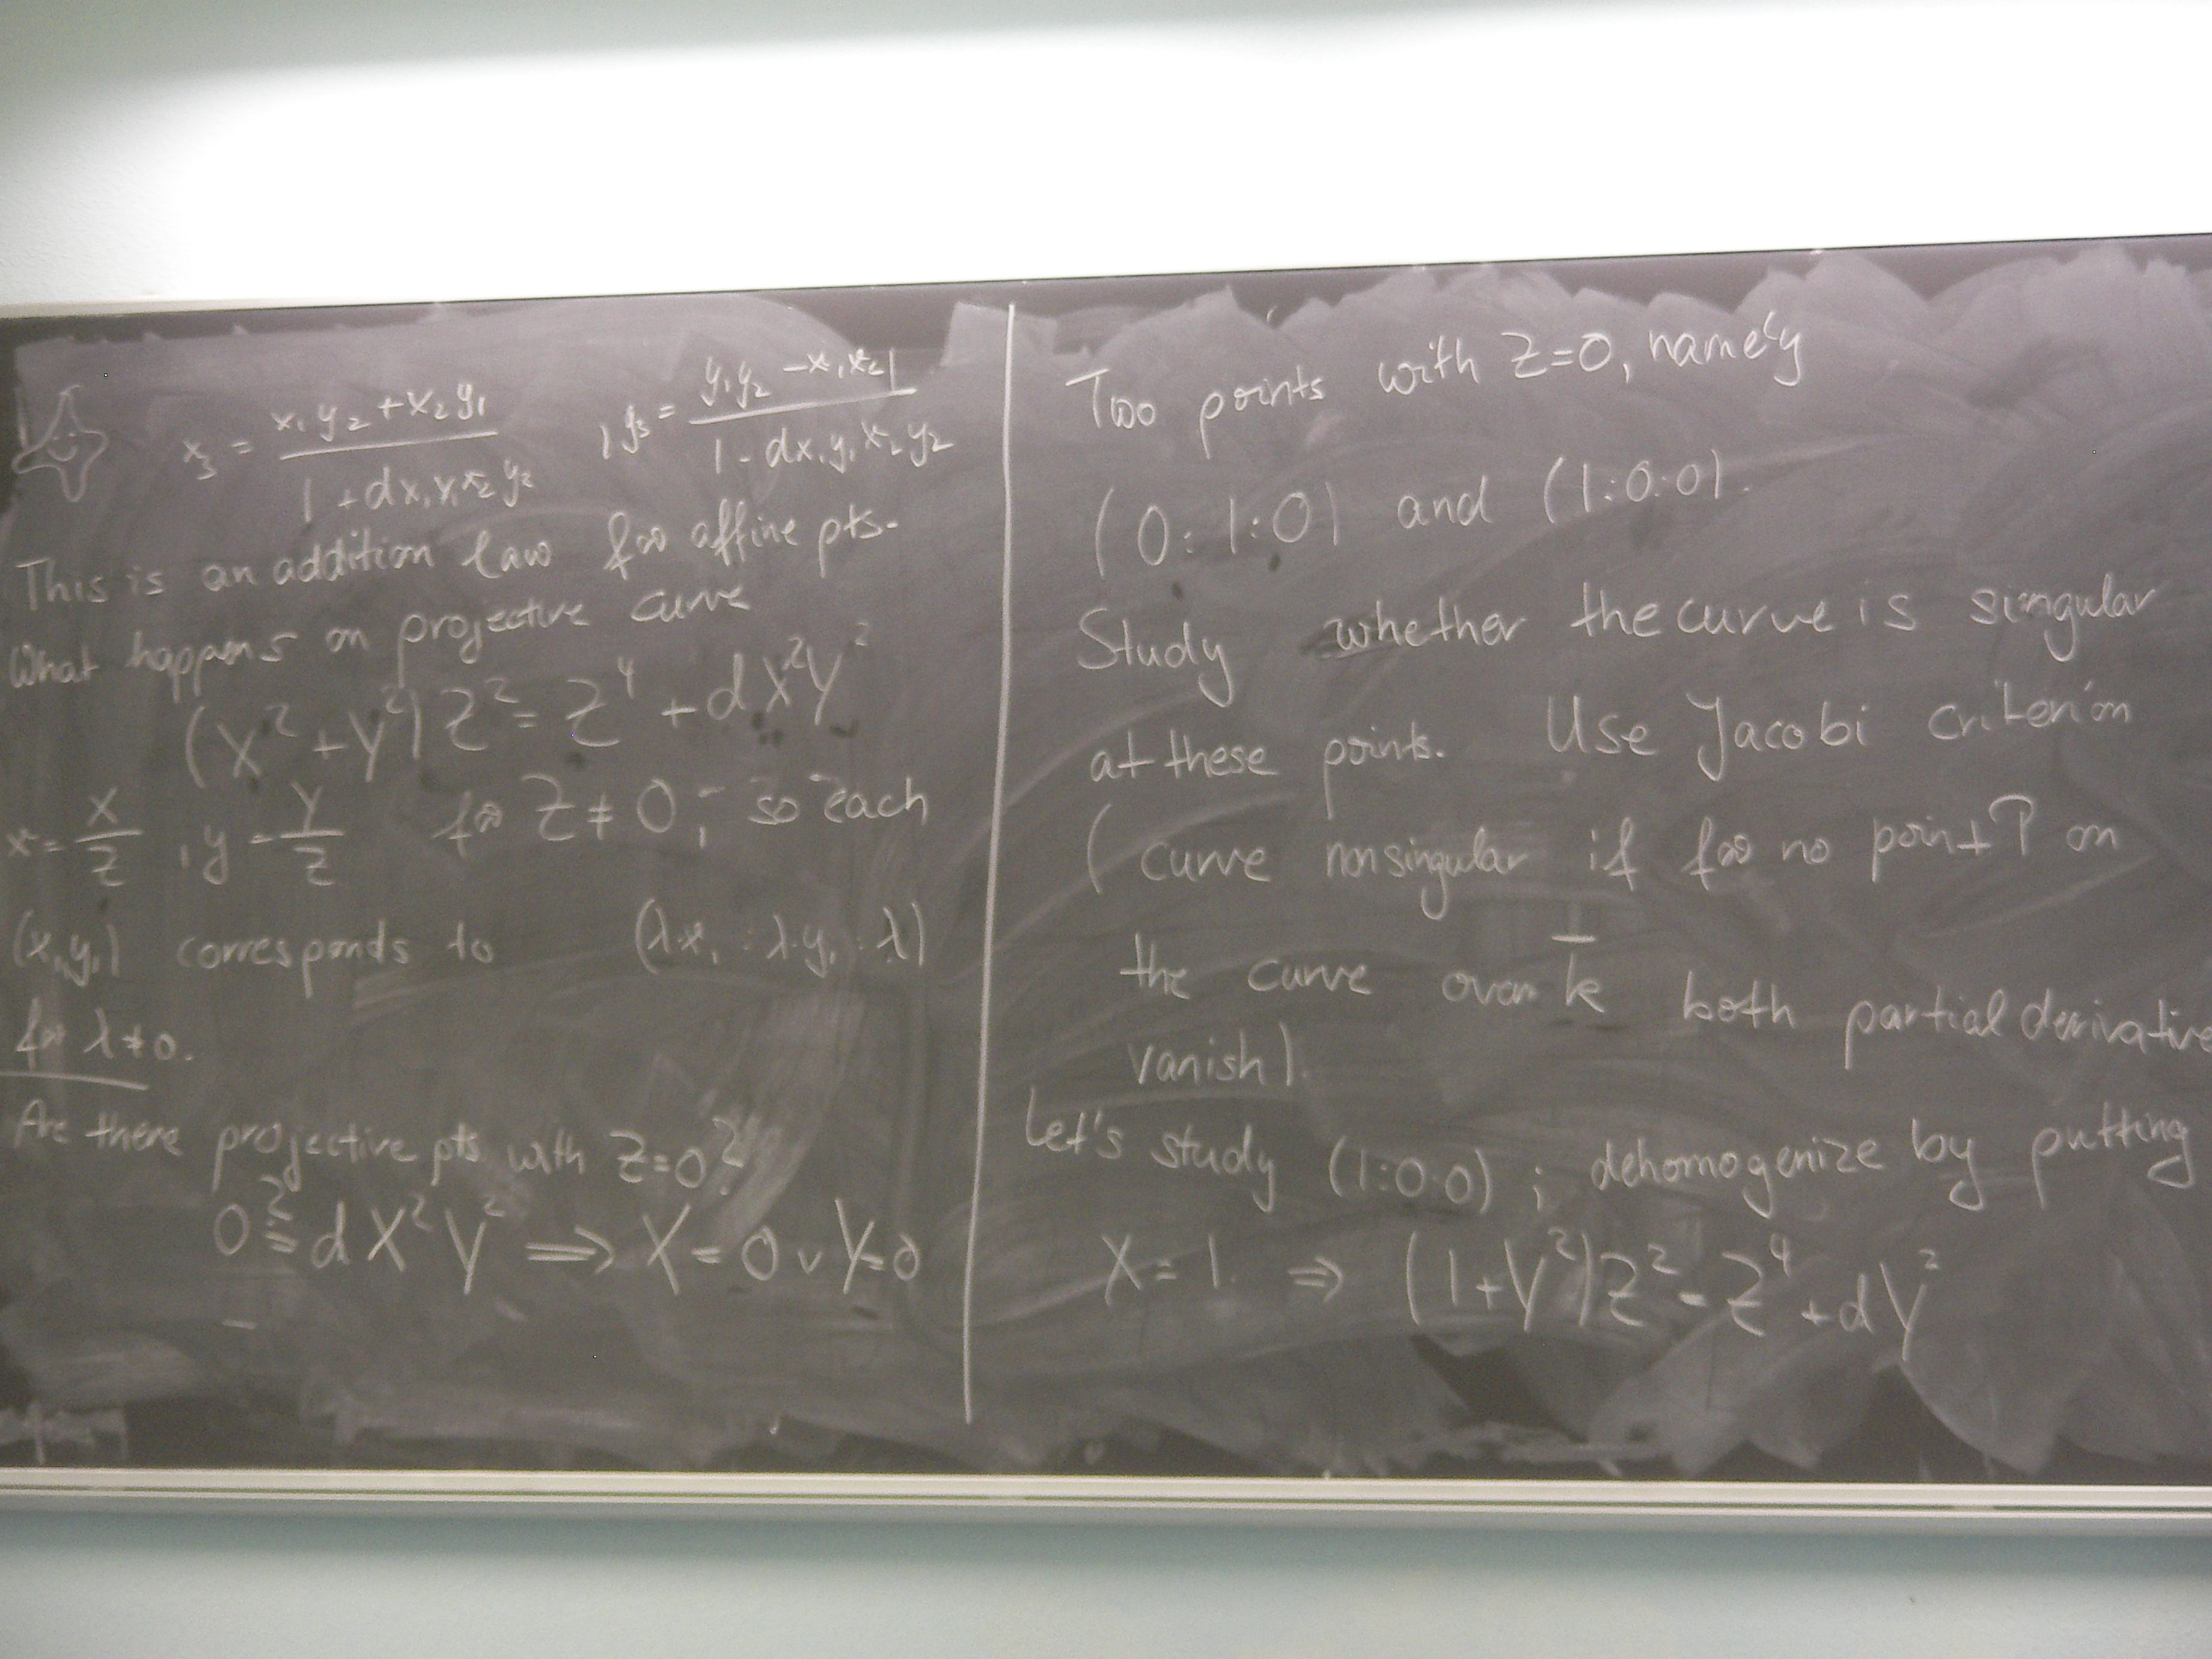 x₃ = (x₁y₂ + x₂y₁) / (1 + dx₁y₁x₂y₂) , y₃ = (y₁y₂ - x₁x₂) / (1 - dx₁y₁x₂y₂)
This is an addition law for affine pts.
What happens on projective curve
(X² + Y²) Z² = Z⁴ + dX²Y²
x = X/Z , y = Y/Z for Z ≠ 0 ; so each
(x₁,y₁) corresponds to (λx₁ : λ·y₁ : λ)
for λ≠0.
Are there projective pts with Z=0?
0 ≟ dX²Y² ⟹ X=0 ∨ Y=0
Two points with Z=0, namely
(0:1:0) and (1:0:0).
Study whether the curve is singular
at these points. Use Jacobi criterion
(curve nonsingular if for no point P on
the curve over k̄ both partial derivative
vanish).
Let's study (1:0:0) ; dehomogenize by putting
X=1. ⇒ (1+Y²)Z² = Z⁴ + dY²